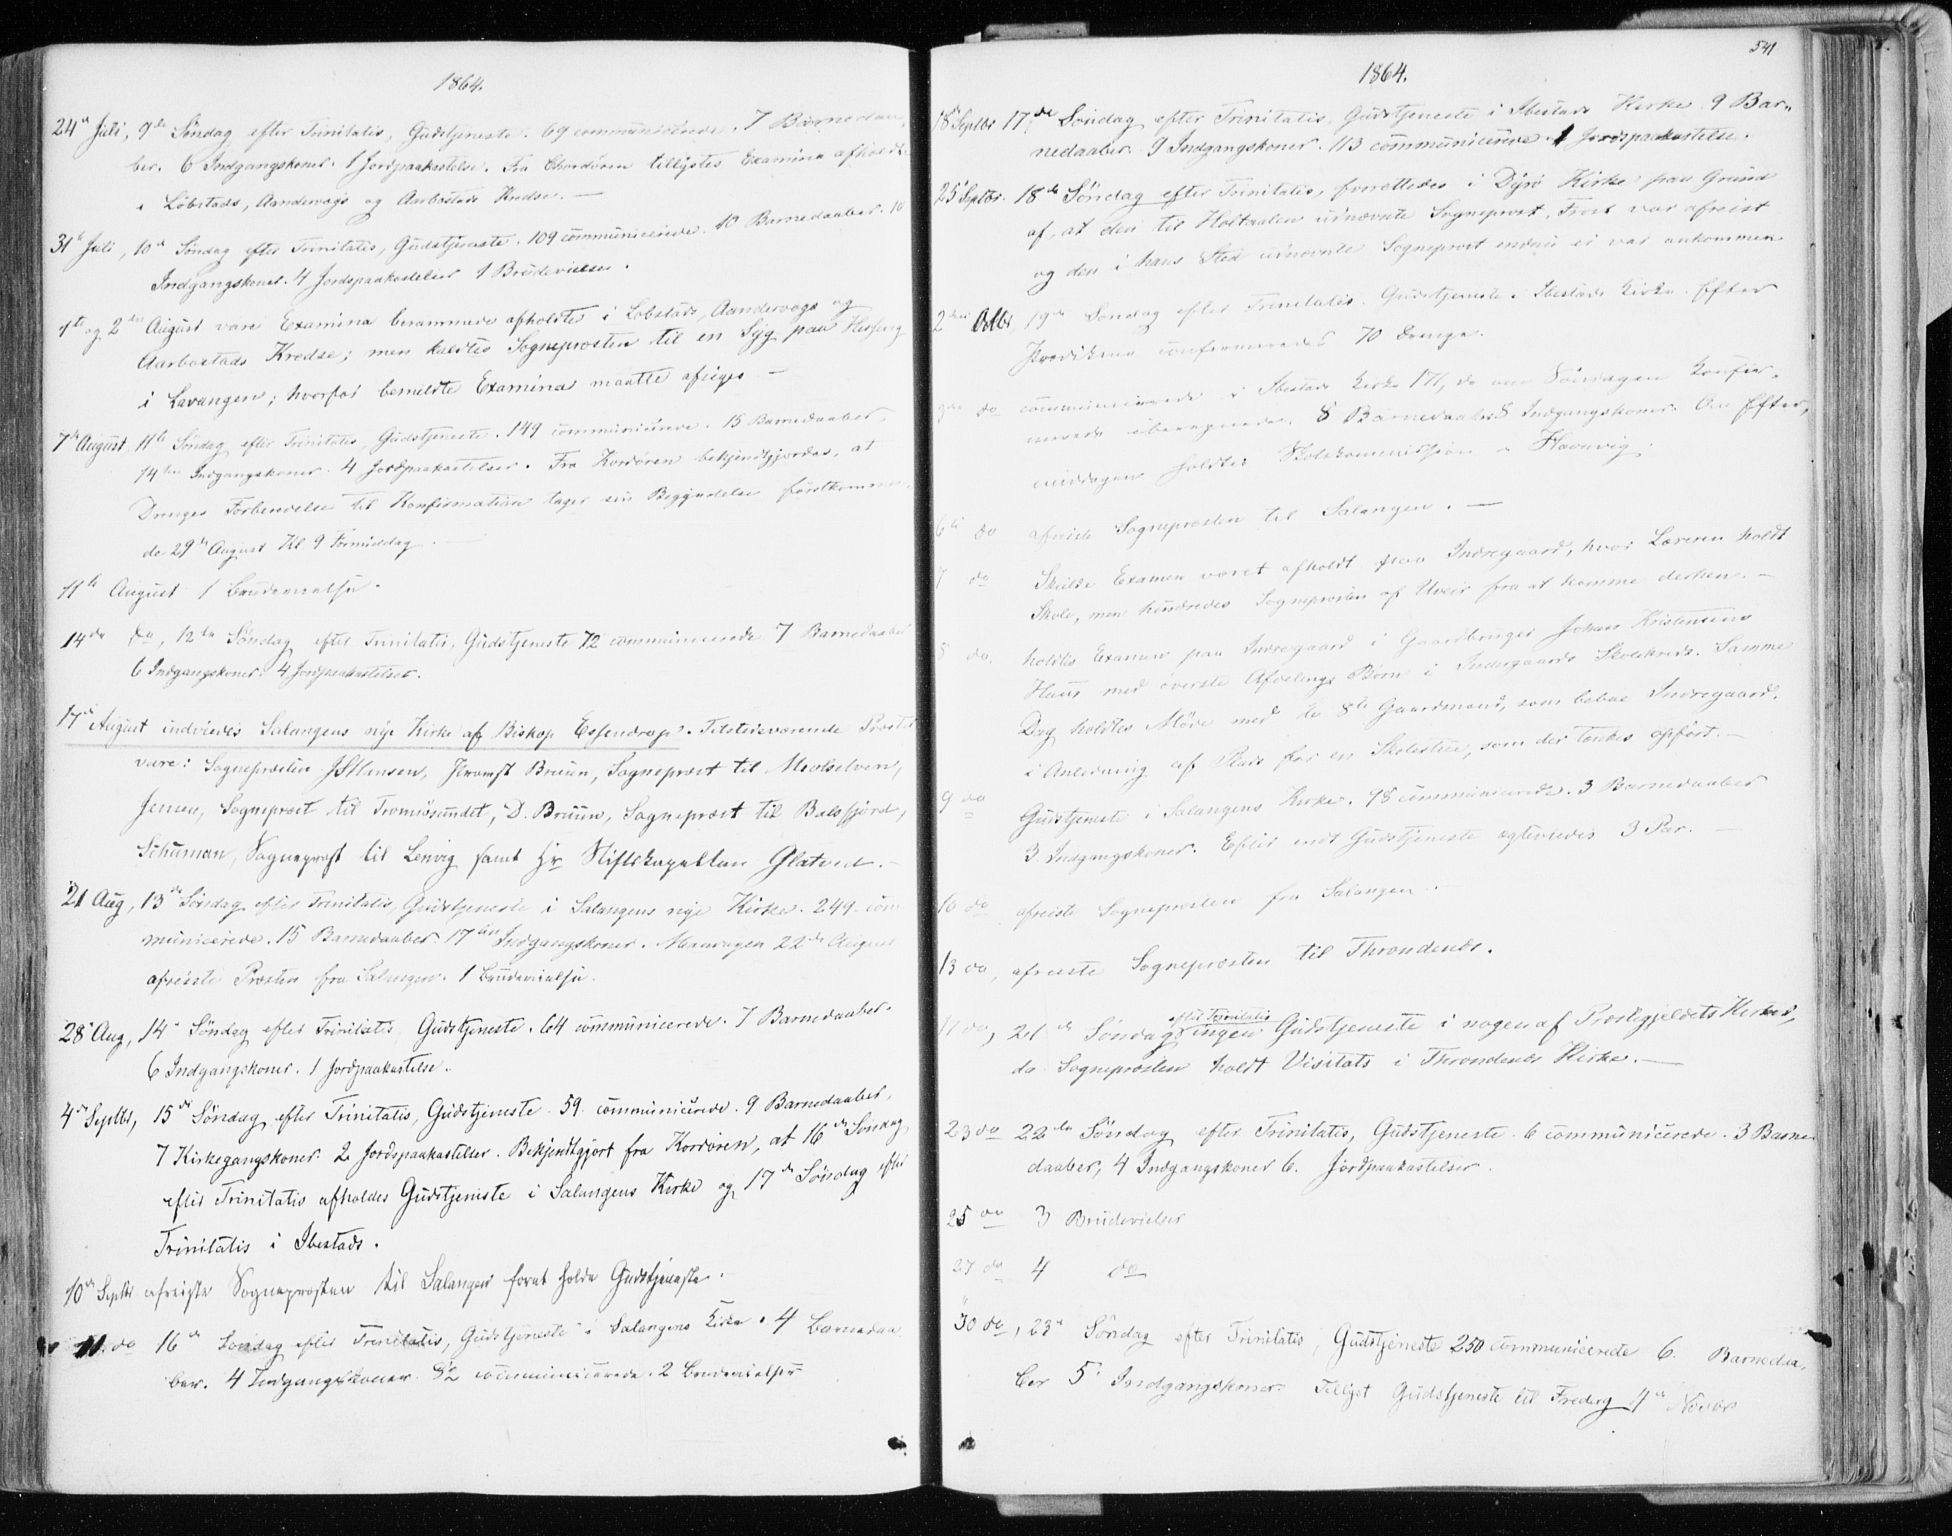 1864.
24de Juli, 9de Søndag efter Trinitatis, Gudstjeneste. 69 communicerede. 7 Barnedaa-
ber. 6 Indgangskoner. 1 Jordpaakastelse. Fra Chordøren tillystes Examina afholdte
i Løbstads, Aandervags og Aarbostads Kredse. —
31te Juli, 10de Søndag efter Trinitatis, Gudstjeneste. 109 communicerede. 10 Barnedaaber. 10
Indgangskoner. 4 Jordspaakastelser 1 Brudevielse.
1ste og 2den August vare Examina berammede afholdte i Løbstads, Aandervags og
Aarbostads Kredse; men kaldtes Sognepræsten til en Syg paa
i Lavangen; hvorfor bemeldte Examina maatte afsiges —
7de August, 11te Søndag efter Trinitatis, Gudstjeneste. 149 communicerede. 15 Barnedaaber,
14ten Indgangskoner. 4 Jordpaakastelser. Fra Kordøren bekjendtgjordes, at
Drenges Forberedelse til Konfirmation tager sin Begyndelse førstkommen-
de 29de August Kl 9 Formiddag. —
11te August 1 Brudevielse.
14de do, 12te Søndag efter Trinitatis, Gudstjeneste 72 communicerede 7 Barnedaaber
6 Indgangskoner. 4 Jordpaakastelser.
17de August indviedes Salangens nye Kirke af Biskop Essendrop. Tilstedeværende Præster
vare: Sognepræsten J Hansen, Provst Bruun, Sognepræst til Maalselven,
Jensen, Sognepræst til Tromsøsundet, D. Bruun, Sognepræst til Balsfjord,
Schuman, Sognepræst til Lenvig samt Hr Stiftskapellan Glatved. —
21 Aug, 13de Søndag efter Trinitatis, Gudstjeneste i Salangens nye Kirke. 249 com-
municerede. 15 Barnedaaber 17ten Indgangskoner. Mandagen 22de August
afreiste Præsten fra Salangen. 1 Brudevielse.
28 Aug, 14de Søndag efter Trinitatis, Gudstjeneste. 64 communicerede. 7 Barnedaaber.
6 Indgangskoner. 1 Jordpaakastelse.
4de Septbr, 15de Søndag efter Trinitatis, Gudstjeneste. 59 communicerede. 9 Barnedaaber,
7 Kirkegangskoner. 2 Jordspaakastelser. Bekjendtgjort fra Kordøren, at 16de Søndag
efter Trinitatis afholdes Gudstjeneste i Salangens Kirke og 17de Søndag efter
Trinitatis i Ibestads.
10de Septbr afreiste Sognepræsten til Salangen forat holde Gudstjeneste.
11 do 16de Søndag efter Trinitatis, Gudstjeneste i Salangens Kirke. 4 Barnedaa-
ber. 4 Indgangskoner. 82 communicerede. 2 Brudevielser
541
1864.
18de Septbr 17de Søndag efter Trinitatis, Gudstjeneste i Ibestads Kirke. 9 Bar-
nedaaber. 9 Indgangskoner. 113 communicerede. 1 Jordspaakastelse.
25 Septbr. 18de Søndag efter Trinitatis, forrettedes i Dyrø Kirke paa Grund
af, at den til Holtaalen udnævnte Sognepræst, Frost var afreist
og den i hans Sted udnævnte Sognepræst endnu ei var ankommen
2den Octbr 19de Søndag efter Trinitatis. Gudstjeneste i Ibestads Kirke. Efter
Prædikenen confirmeredes 70 Drenge.
3die do communicerede i Ibestads Kirke 171, de om Søndagen Konfir-
merede iberegnede. 8 Barnedaaber 8 Indgangskoner. Om Efter-
middagen holdtes Skolekommission i Havnvig.
6te do afreiste Sognepræsten til Salangen. —
7 do Skulde Examen været afholdt paa Indregaard, hvor Læreren holdt
Skole, men hindredes Sognepræsten af Uveir fra at komme derhen. —
8 do. holdtes Examen paa Indregaard i Gaardbruger Johan Kristensens
Huus med øverste Afdelings Børn i Indregaards Skolekreds. Samme
Dag holdtes Møde med de 8te Gaardmænd, som beboe Indregaard,
i Anledning af Plads for en Skolestue, som der tænkes opført. —
9 do Gudstjeneste i Salangens Kirke. 48 communicerede. 3 Barnedaaber
3 Indgangskoner. Efter endt Gudstjeneste egteviedes 3 Par. —
10 do afreiste Sognepræsten fra Salangen. —
13 do, afreiste Sognepræsten til Throndenæs.
17 do, 21de Søndag efter Trinitatis ingen Gudstjeneste i nogen af Præstegjeldets Kirker,
da Sognepræsten holdt Visitats i Throndenæs Kirke. —
23 do 22de Søndag efter Trinitatis, Gudstjeneste. 6 communicerede. 3 Barne-
daaber, 4 Indgangskoner 6. Jordpaakastelser.
25 do 3 Brudevielser
27 do 4 do
30 do, 23de Søndag efter Trinitatis, Gudstjeneste 250 communicerede 6. Barnedaa-
ber 5 Indgangskoner. Tillyst Gudstjeneste til Fredag 4de Novbr